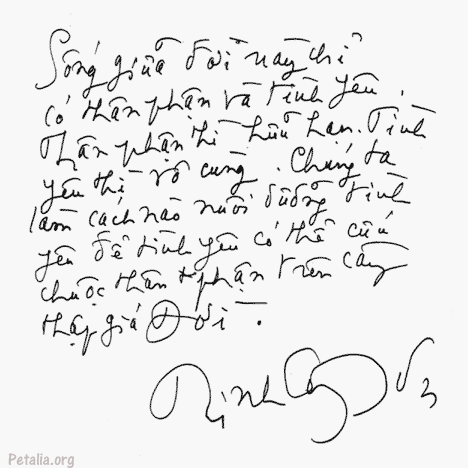 Sống giữa đời này chỉ
có thân phận và tình yêu.
Thân phận thì hữu hạn. Tình
yêu thì vô cùng. Chúng ta
làm cách nào nuôi dưỡng tình
yêu để tình yêu có thể cứu
chuộc thân phận trên cây
thập giá Đời.
Trịnh Công Sơn
Petalia.org